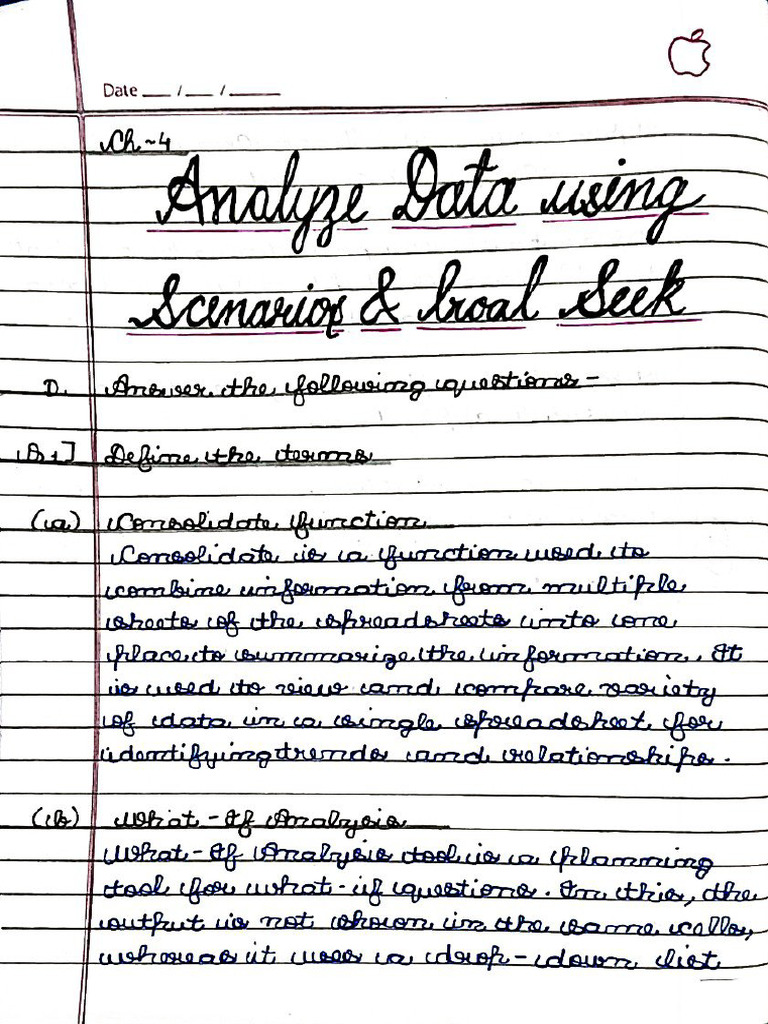 Date __ / __ / ____
Ch-4
Analyze Data using
Scenarios & Goal Seek
D. Answer the following questions-
A.1] Define the terms
(a) Consolidate function
Consolidate is a function used to
combine information from multiple
sheets of the spreadsheets into one
place to summarize the information. It
is used to view and compare variety
of data in a single spreadsheet for
identifying trends and relationships.
(b) What-If Analysis
What-If Analysis tool is a planning
tool for what-if questions. In this, the
output is not shown in the same cells,
whereas it uses a drop-down list